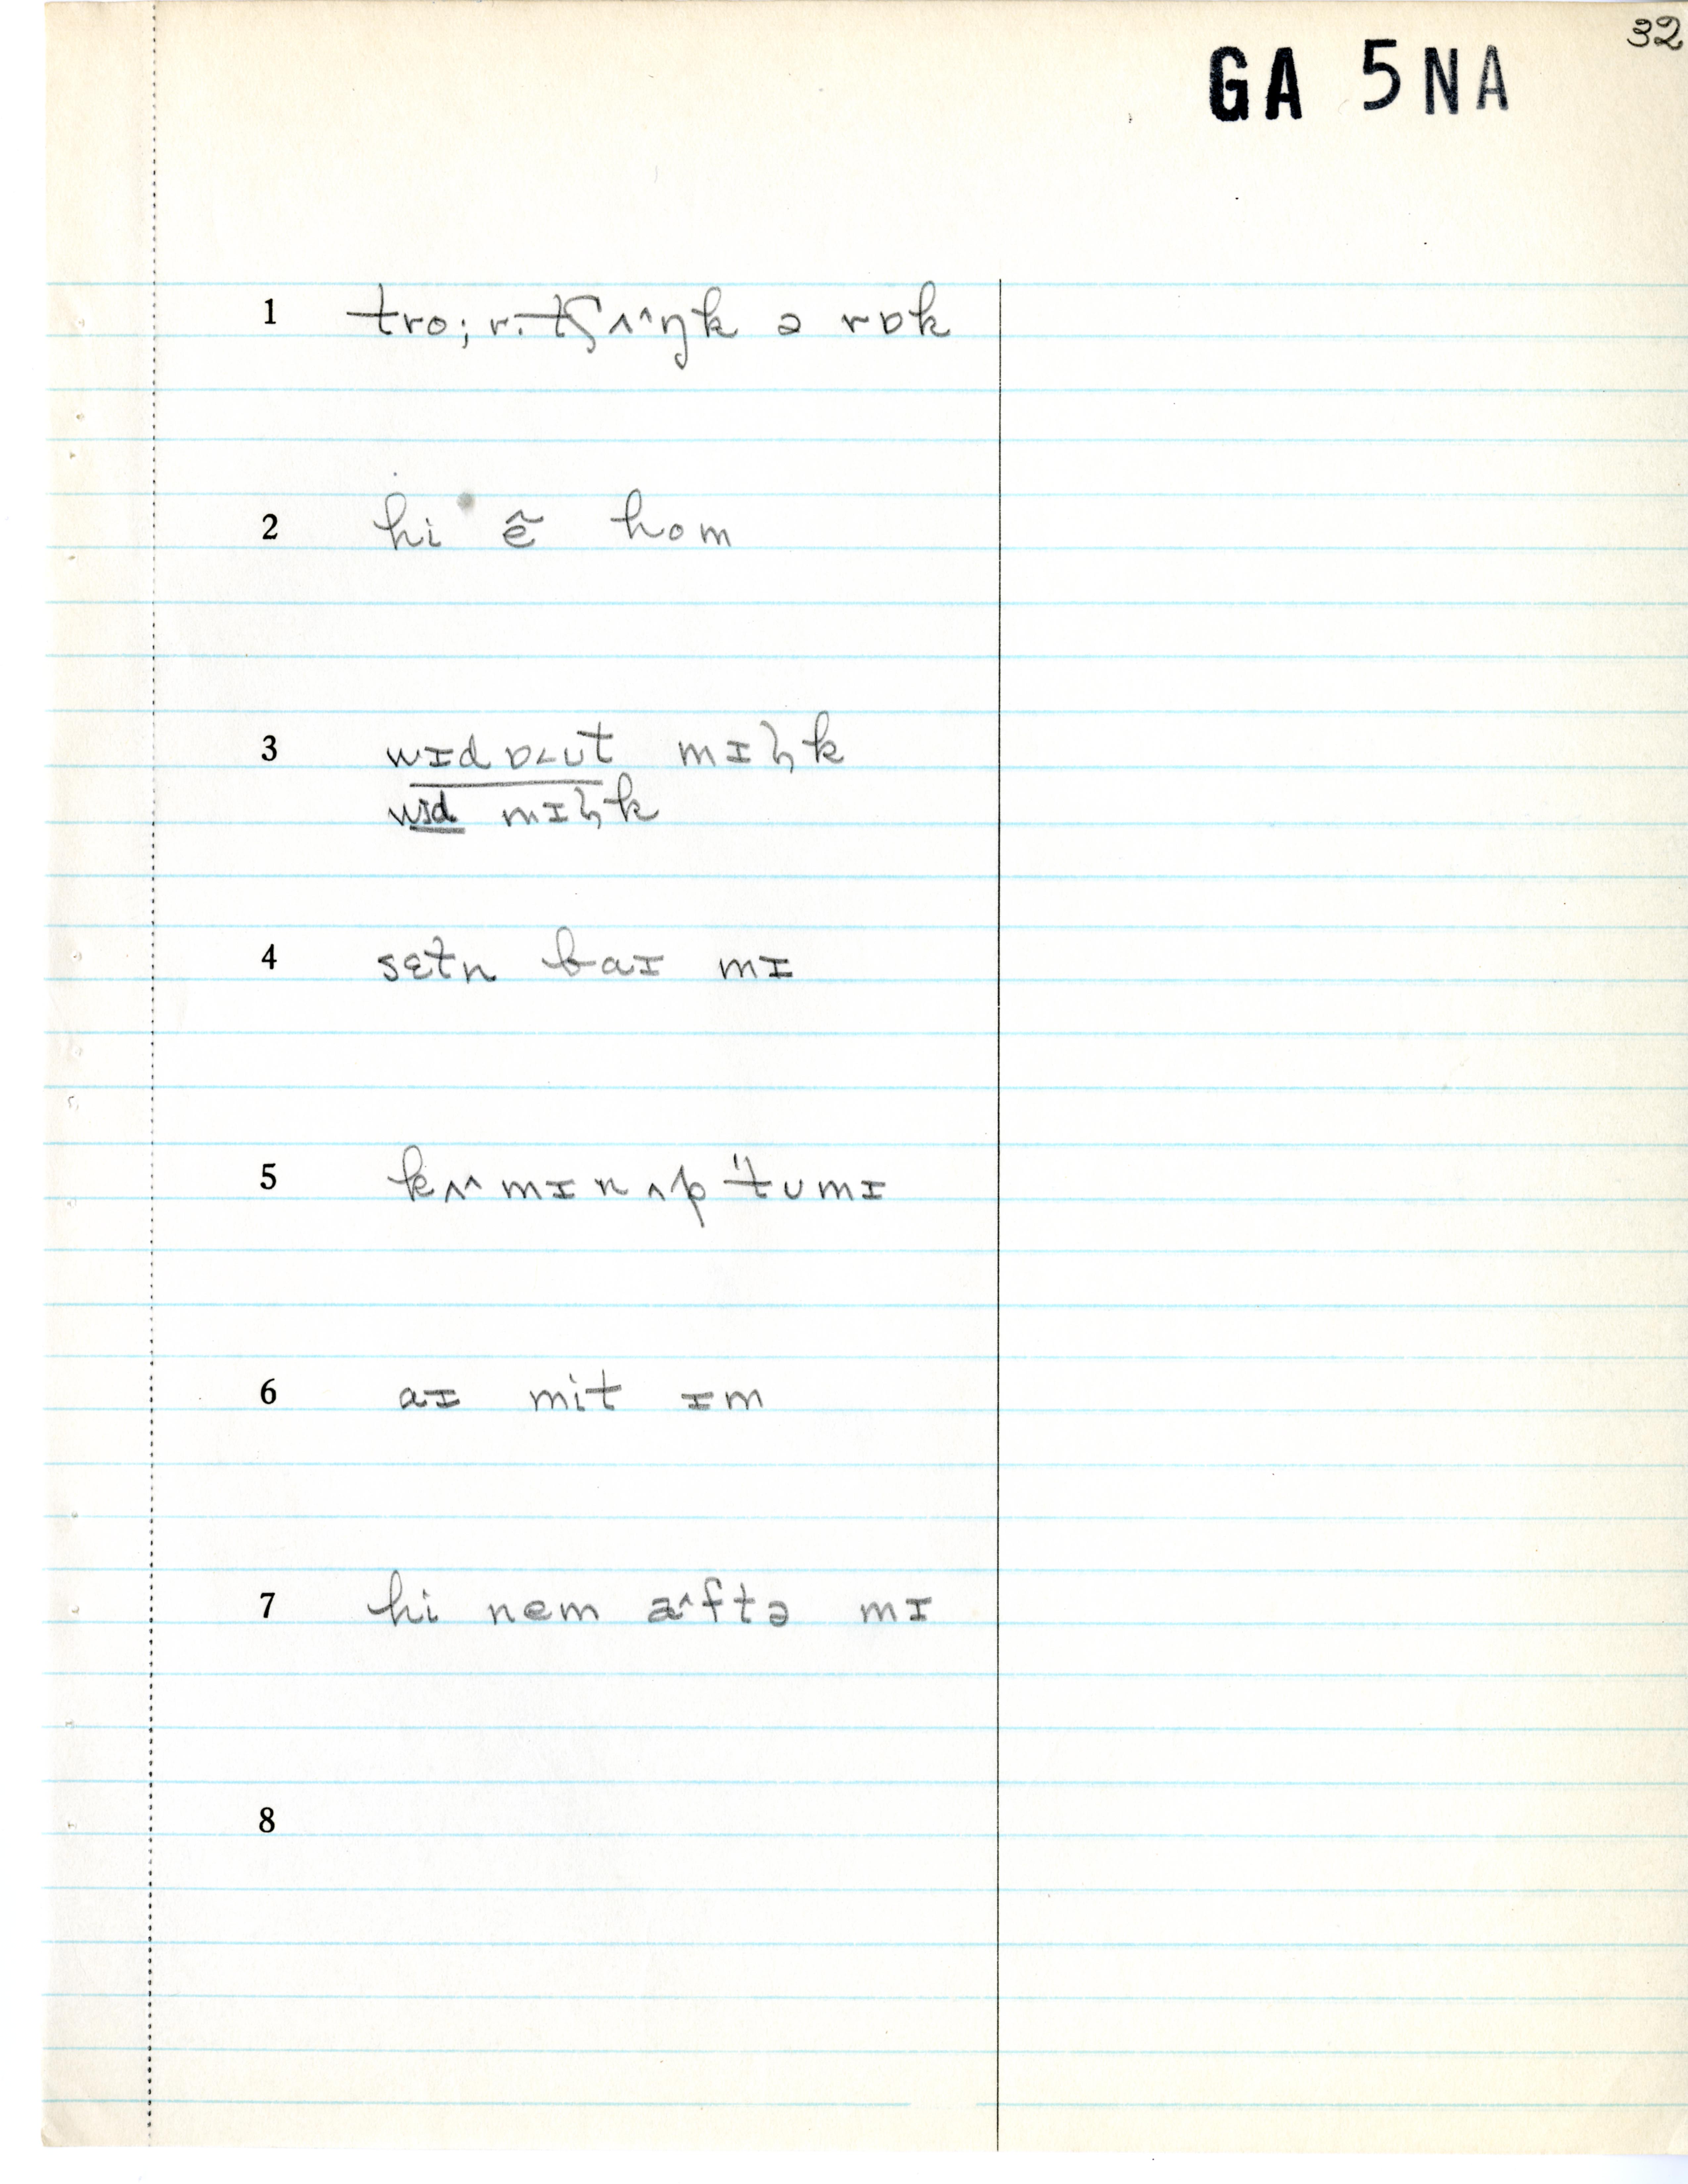 32
GA 5NA
1 tro; r. tʃʌ^ŋk ə rɒk
2 hi ẽ hom
3 wɪd ɒ<ut mɪɫk
wɪd mɪɫk
4 sɛtn baɪ mɪ
5 kʌ^mɪnʌp tʊmɪ
6 aɪ mit ɪm
7 hi nem æ^ftə mɪ
8